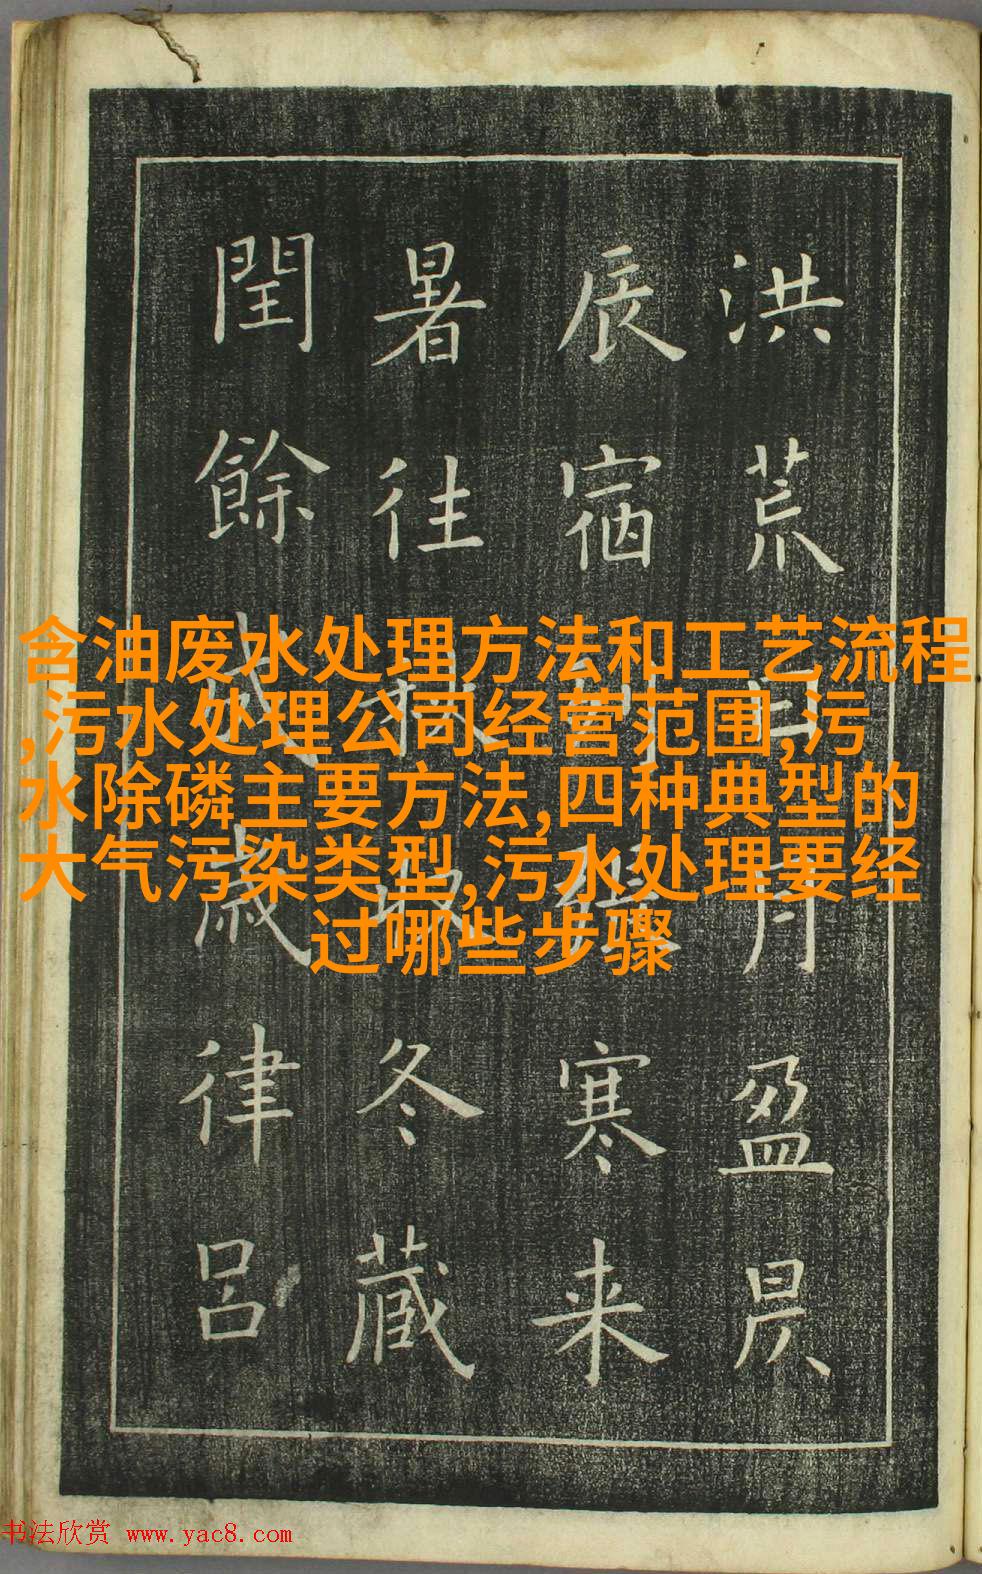 洪荒日月盈昃
辰宿列張寒来
暑往秋收冬藏
閏餘成歲律呂
含油废水处理方法和工艺流程
,污水处理公司经营范围,污
水除磷主要方法,四种典型的
大气污染类型,污水处理要经
过哪些步骤
书法欣赏 www.yac8.com